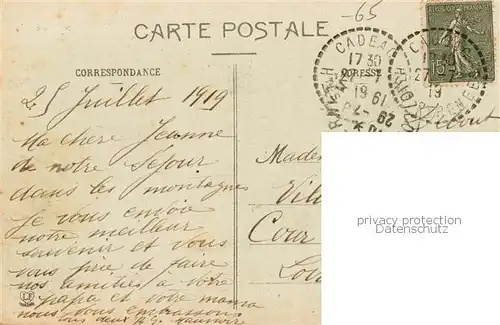 -65
CARTE POSTALE
CORRESPONDANCE
ADRESSE
CADEAC
17 30
27-7
19
REPUBLIQUE FRANÇAISE
15c
25 Juillet 1919
Ma chere Jeanne
de notre Sejour
dans les montagnes
je vous envoie
notre meilleur
souvenir et vous
vous prie de faire
nos amitiés à votre
papa et votre maman
nous vous embrassons
tous deux
Made
Vil
Cour
privacy protection
Datenschutz